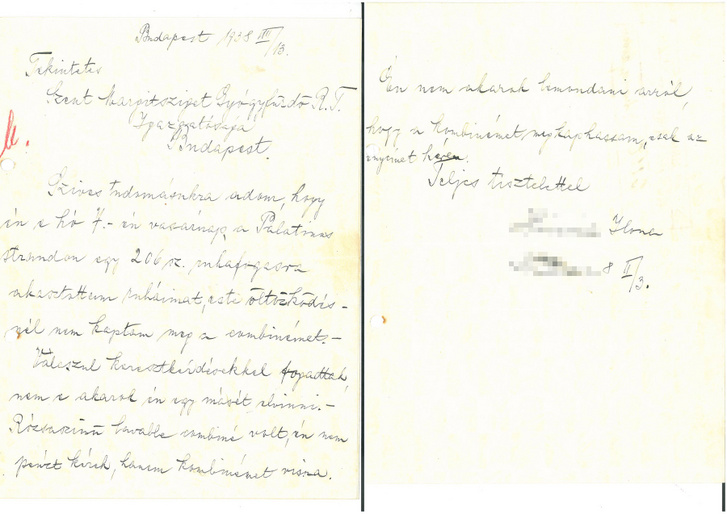 Budapest 1938 VIII/13.
Tekintetes
Szent Margitsziget Gyógyfürdő R.T.
Igazgatósága
Budapest.
Szíves tudomásukra adom, hogy
én e hó 7.-én vasárnap a Palatinus
strandon egy 206 sz. ruhafogasra
akasztottam ruháimat, este öltözködés-
nél nem kaptam meg a combinémet.-
Válaszul keresztkérdésekkel fogadtak,
nem e akarok én egy másét elvinni.-
Rózsaszínű lavable combiné volt, én nem
pénzt kérek, hanem kombinémet vissza.
Én nem akarok lemondani arról,
hogy a kombinémet megkaphassam, csak az
enyémet kérem.
Teljes tisztelettel
Ilona
8 II/3.